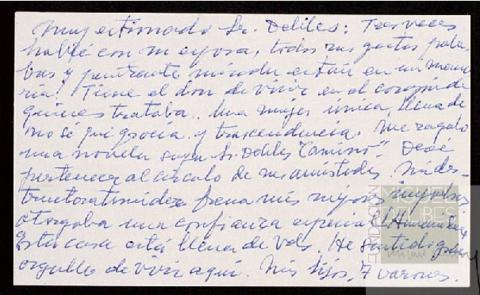 Muy estimado Sr. Delibes: Tres veces
hablé con su esposa, todos sus gestos pala-
bras y penetrante mirada están en mi memo-
ria! Tiene el don de vivir en el corazón de
quienes trataba. Una mujer única, llena de
no se qué gracia y trascendencia. Me regaló
una novela suya Sr. Delibes "Camino". Desde
pertenecer al círculo de sus amistades. Mi des-
tructora timidez frena mis mejores impulsos
otorgaba una confianza especial!
Esta casa está llena de Vds. He sentido gran
orgullo de vivir aquí. Mis hijos, 7 varones.